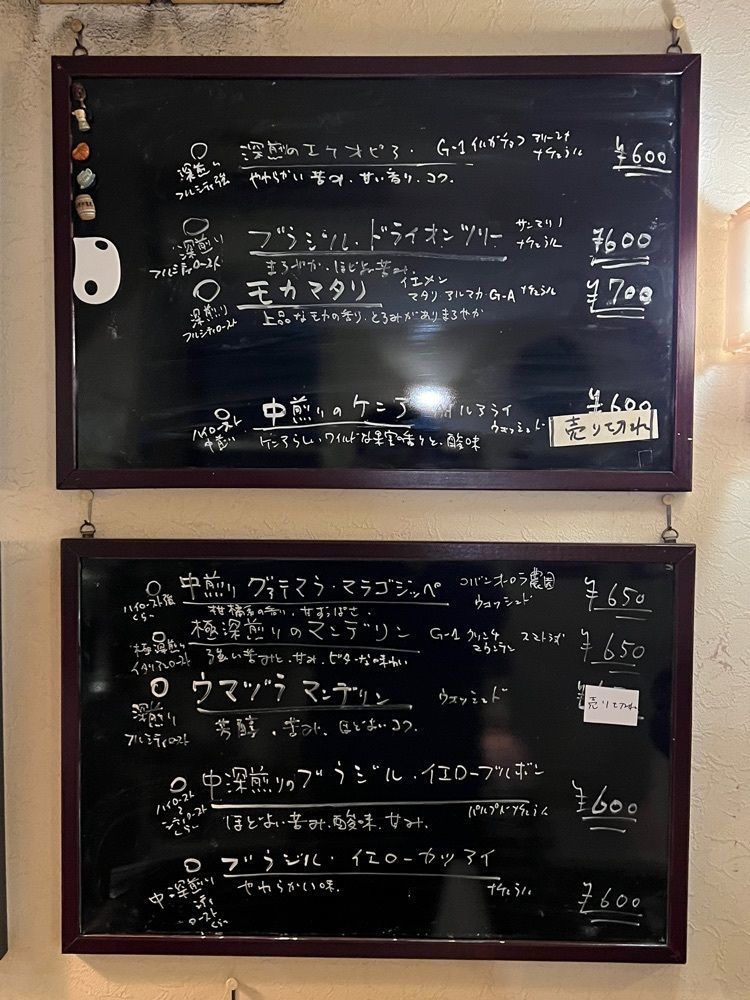 深煎のエチオピア・ G-1 イルガチェフ アリーチャ ナチュラル ¥600
深煎り フルシティ強
やわらかい苦み、甘い香り、コク、
ブラジル・ドライオンツリー サンマリノ ナチュラル ¥600
深煎り フルシティロースト
まろやか、ほどよい苦み、
モカマタリ イエメン マタリ アルマカ・G-A ナチュラル ¥700
深煎り フルシティロースト
上品なモカの香り、とろみがありまろやか
中煎りのケニア ルアライ ウォッシュド ¥600
売り切れ
ハイロースト 中煎り
ケニアらしいワイルドな果実の香りと、酸味
中煎り グァテマラ・マラゴジッペ コバンオーロラ農園 ウォッシュド ¥650
ハイロースト強 くらい
柑橘系の香り、甘ずっぱさ、
極深煎りのマンデリン G-1 スマトラ島 ¥650
極深煎り イタリアンロースト
強い苦みと、甘み、ビターな味わい
ウマヅラ マンデリン ウォッシュド
売り切れ
深煎り フルシティロースト
芳醇、苦み、ほどよいコク、
中深煎りのブラジル・イエローブルボン パルプドナチュラル ¥600
ハイロースト シティロースト くらい
ほどよい苦み、酸味、甘み、
ブラジル・イエローカツアイ ナチュラル ¥600
中・深煎り シティ ロースト くらい
やわらかい味、